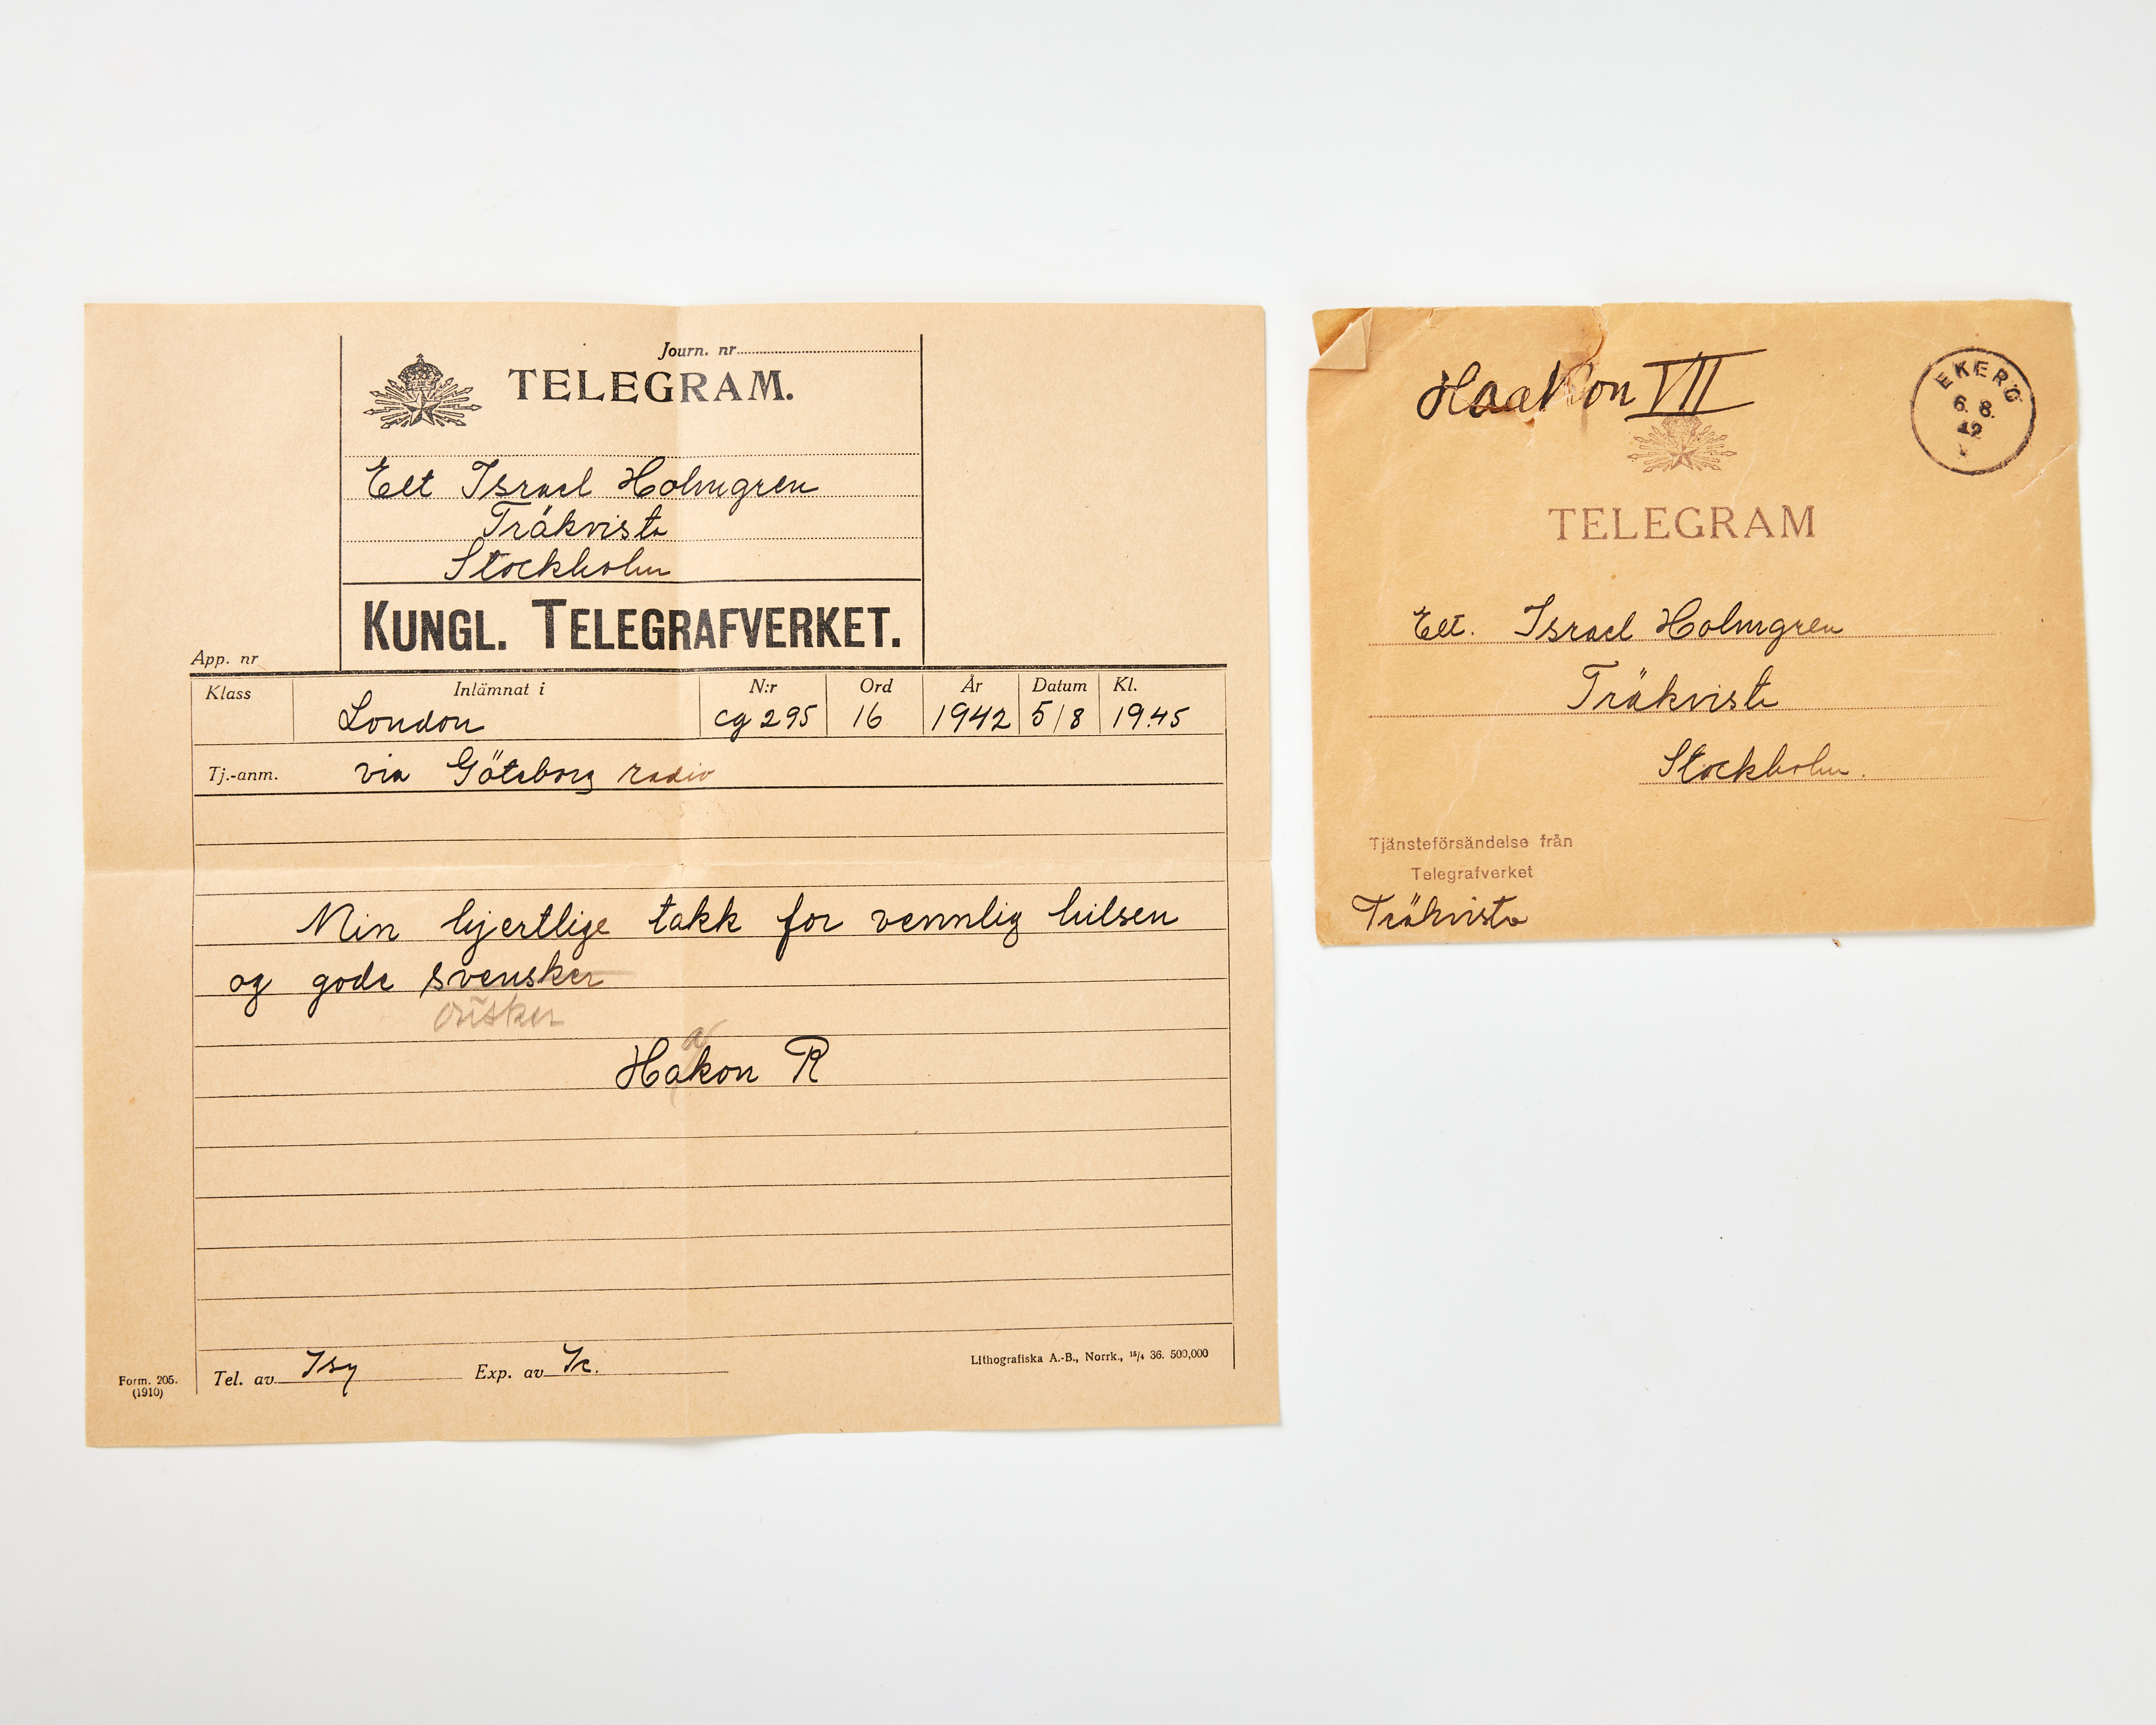 Journ. nr
TELEGRAM.
Elt Israel Holmgren
Träkvista
Stockholm
KUNGL. TELEGRAFVERKET.
App. nr
Klass Inlämnat i N:r Ord År Datum Kl.
London cg 295 16 1942 5/8 19.45
Tj.-anm. via Göteborg radio
Min hjertlige takk for vennlig hilsen
og gode svensker
önsker
a
Hakon R
Tel. av Exp. av
Lithografiska A.-B., Norrk., 15/4 36. 500,000
Form. 205.
(1910)
Haakon VII
EKERÖ
6. 8.
42
TELEGRAM
Elt. Israel Holmgren
Träkvista
Stockholm.
Tjänsteförsändelse från
Telegrafverket
Träkvista